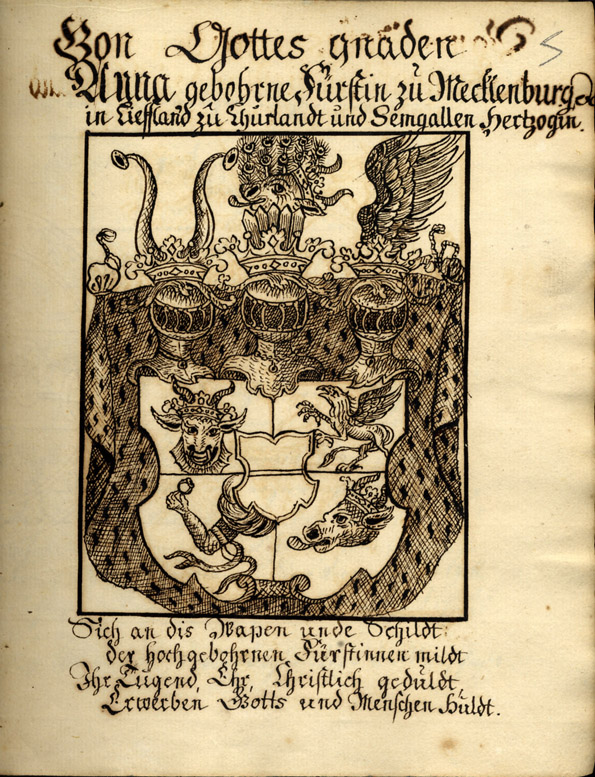 Von Gottes gnaden
Anna gebohrne Fürstin zu Mecklenburg
in Liefland zu Churlandt und Semgallen Hertzogin.
Sich an dis Wapen unde Schildt
der hochgebohrnen Fürstinnen mildt
Ihr Tugend, Ehr, Christlich geduldt,
Erwerben Gotts und Menschen Huldt.